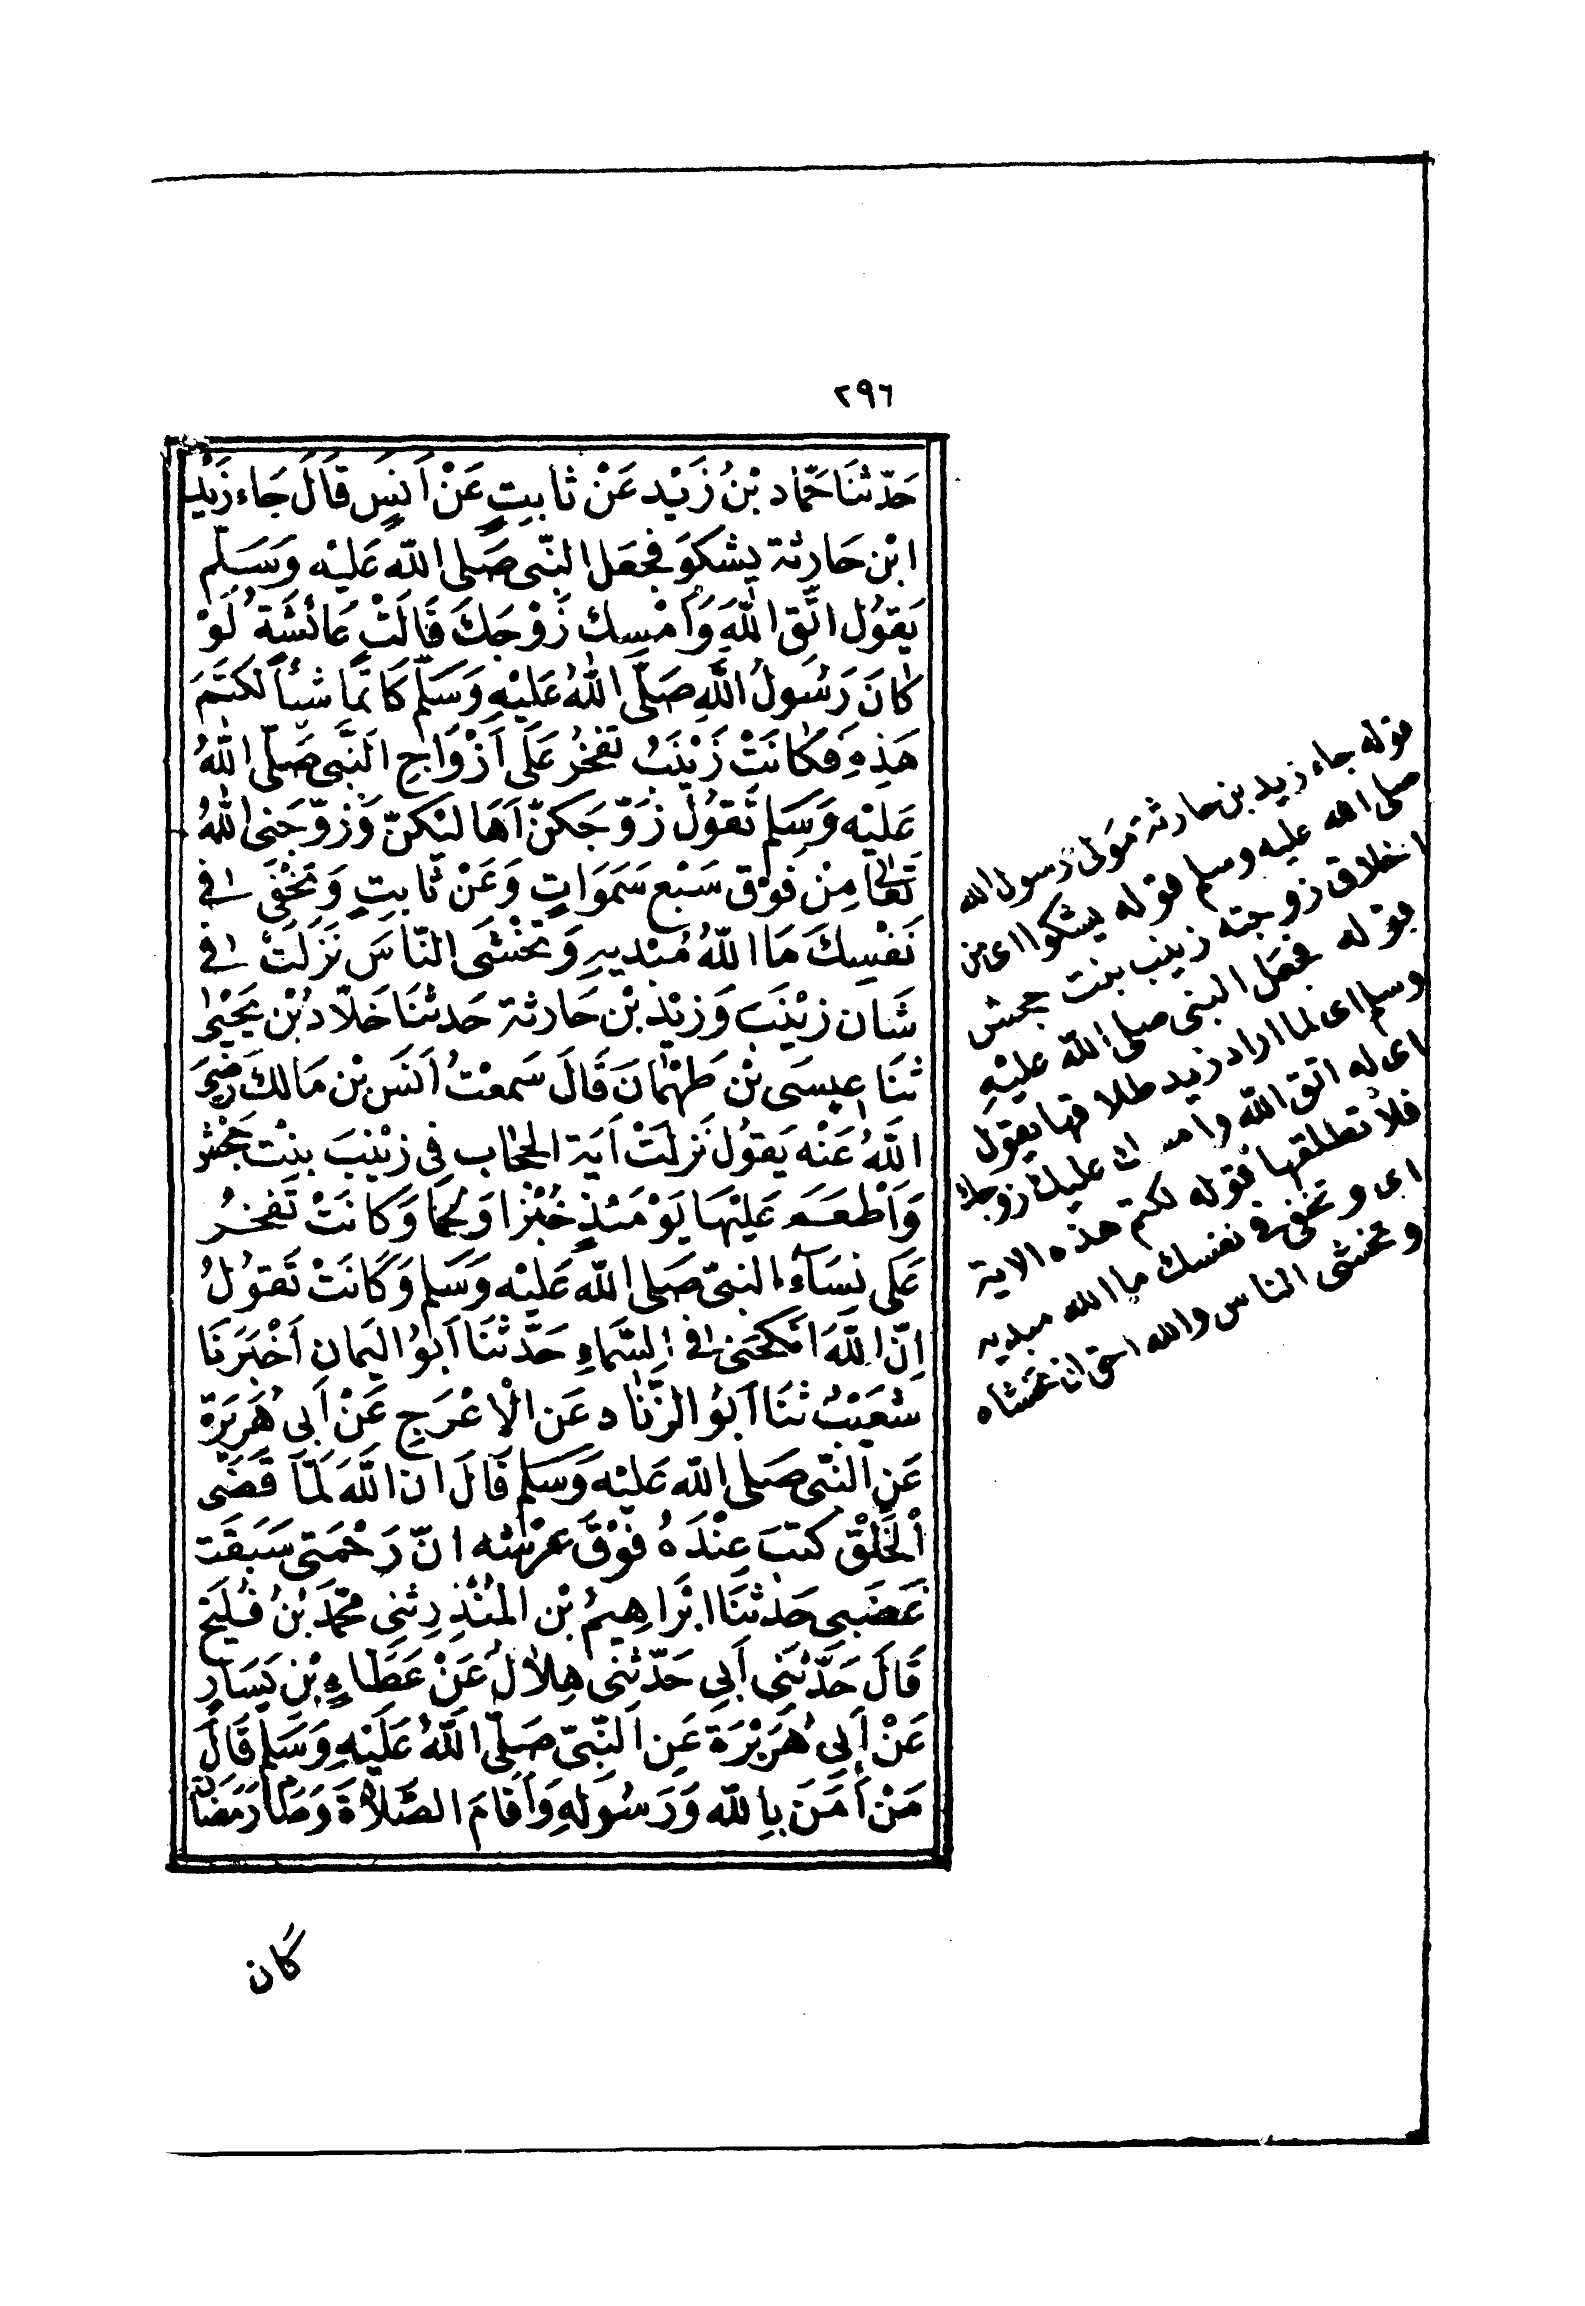 ٢٩٦
حَدّثنَا حَمّاد بْنُ زَيْد عَنْ ثابِتٍ عَنْ اَنسٍ قالَ جَاء زَيْد
ابْن حَارثة يشكوَ فجعَل النّبى صَلى الله عَليْه وَسَلّم
يَقوُل اتّق اللهَ وَاَمْسِك زَوْجَكَ قَالَتْ عَائشَةُ لَوْ
كانَ رَسُولُ اللهِ صَلّى اللهُ عَليْهِ وَسَلّم كَاتمًا شيأً لكتَمَ
هَذِهِ فَكانَتْ زَيْنَبُ تفخرُ عَلَى اَزْوَاجِ النّبى صَلّى اللهُ
عَليْه وَسَلم تَقوُل زَوّجَكنّ اَهَاليْكنّ وَزوّجَنى اللهُ
تَعَالى مِنْ فَوْق سَبْع سَمَوَاتٍ وَعَنْ ثَابتٍ وَتخْفى فى
نَفْسِكَ مَا اللهُ مُبْديهِ وَتخْشَى النّاسَ نَزلَتْ فى
شَان زيْنَبَ وَزيْد بْن حَارثة حَدثنَا خَلّادُ بْن يَحْيٰى
ثنَا عِيسَى بْن طَهْمَانَ قَالَ سَمعْتُ اَنَس بْن مَالكَ رَضىَ
اللهُ عَنْه يَقوُل نَزلَتْ اَيَة الحجَاب فى زيْنبَ بنْت جَحْش
وَاَطْعَمَ عَليْهَا يَوْمَئذٍ خُبْزا وَلحمًا وَكَانَتْ تَفخرُ
عَلى نسَاء النبىّ صَلى الله عَليْه وَسَلم وَكَانَتْ تَقوُلُ
اِنّ اللهَ اَنكَحَنى فى السّمَاءِ حَدّثنَا اَبوُ اليَمانِ اَخْبَرَنَا
شعَيْبٌ ثنَا اَبوُ الزّنَاد عَن الْاعْرَجِ عَنْ اَبى هُرَيرَة
عَنِ النّبّى صَلى الله عَليْه وَسَلم قَالَ ان اللهَ لَمّا قَضَى
الْخَلْقَ كتبَ عِنْدَهُ فَوْقَ عَرْشه انّ رَحْمَتى سَبَقَت
غَضَبى حَدثنَا ابْرَاهِيمُ بْن المُنْذِرِ ثنى محَمّدُ بْنُ فُليْح
قَالَ حَدّثنى اَبى حَدّثنى هِلاَلُ عَنْ عَطَاءِ بْنِ يَسَارٍ
عَنْ اَبى هُرَيْرَة عَن النّبىّ صَلّى اللهُ عَلَيْهِ وَسَلم قَالَ
مَنْ اَمَنَ بِاللهِ وَرَسُولهِ وَاَقَامَ الصّلاَةَ وَصَامَ رَمَضَانَ
كان
قوله جاء زيد بن حارثة مولى رسول الله
صلى الله عليه وسلم قوله يشكوا اى من
اخلاق زوجته زينب بنت جحش
قوله فجعل النبى صلى الله عليه
وسلم اى لما اراد زيد طلاقها يقول
اى له اتق الله وامسك عليك زوجك
فلا تطلقها قوله لكتم هذه الاية
اى وتخفى فى نفسك ما الله مبديه
وتخشى الناس والله احق ان تخشاه